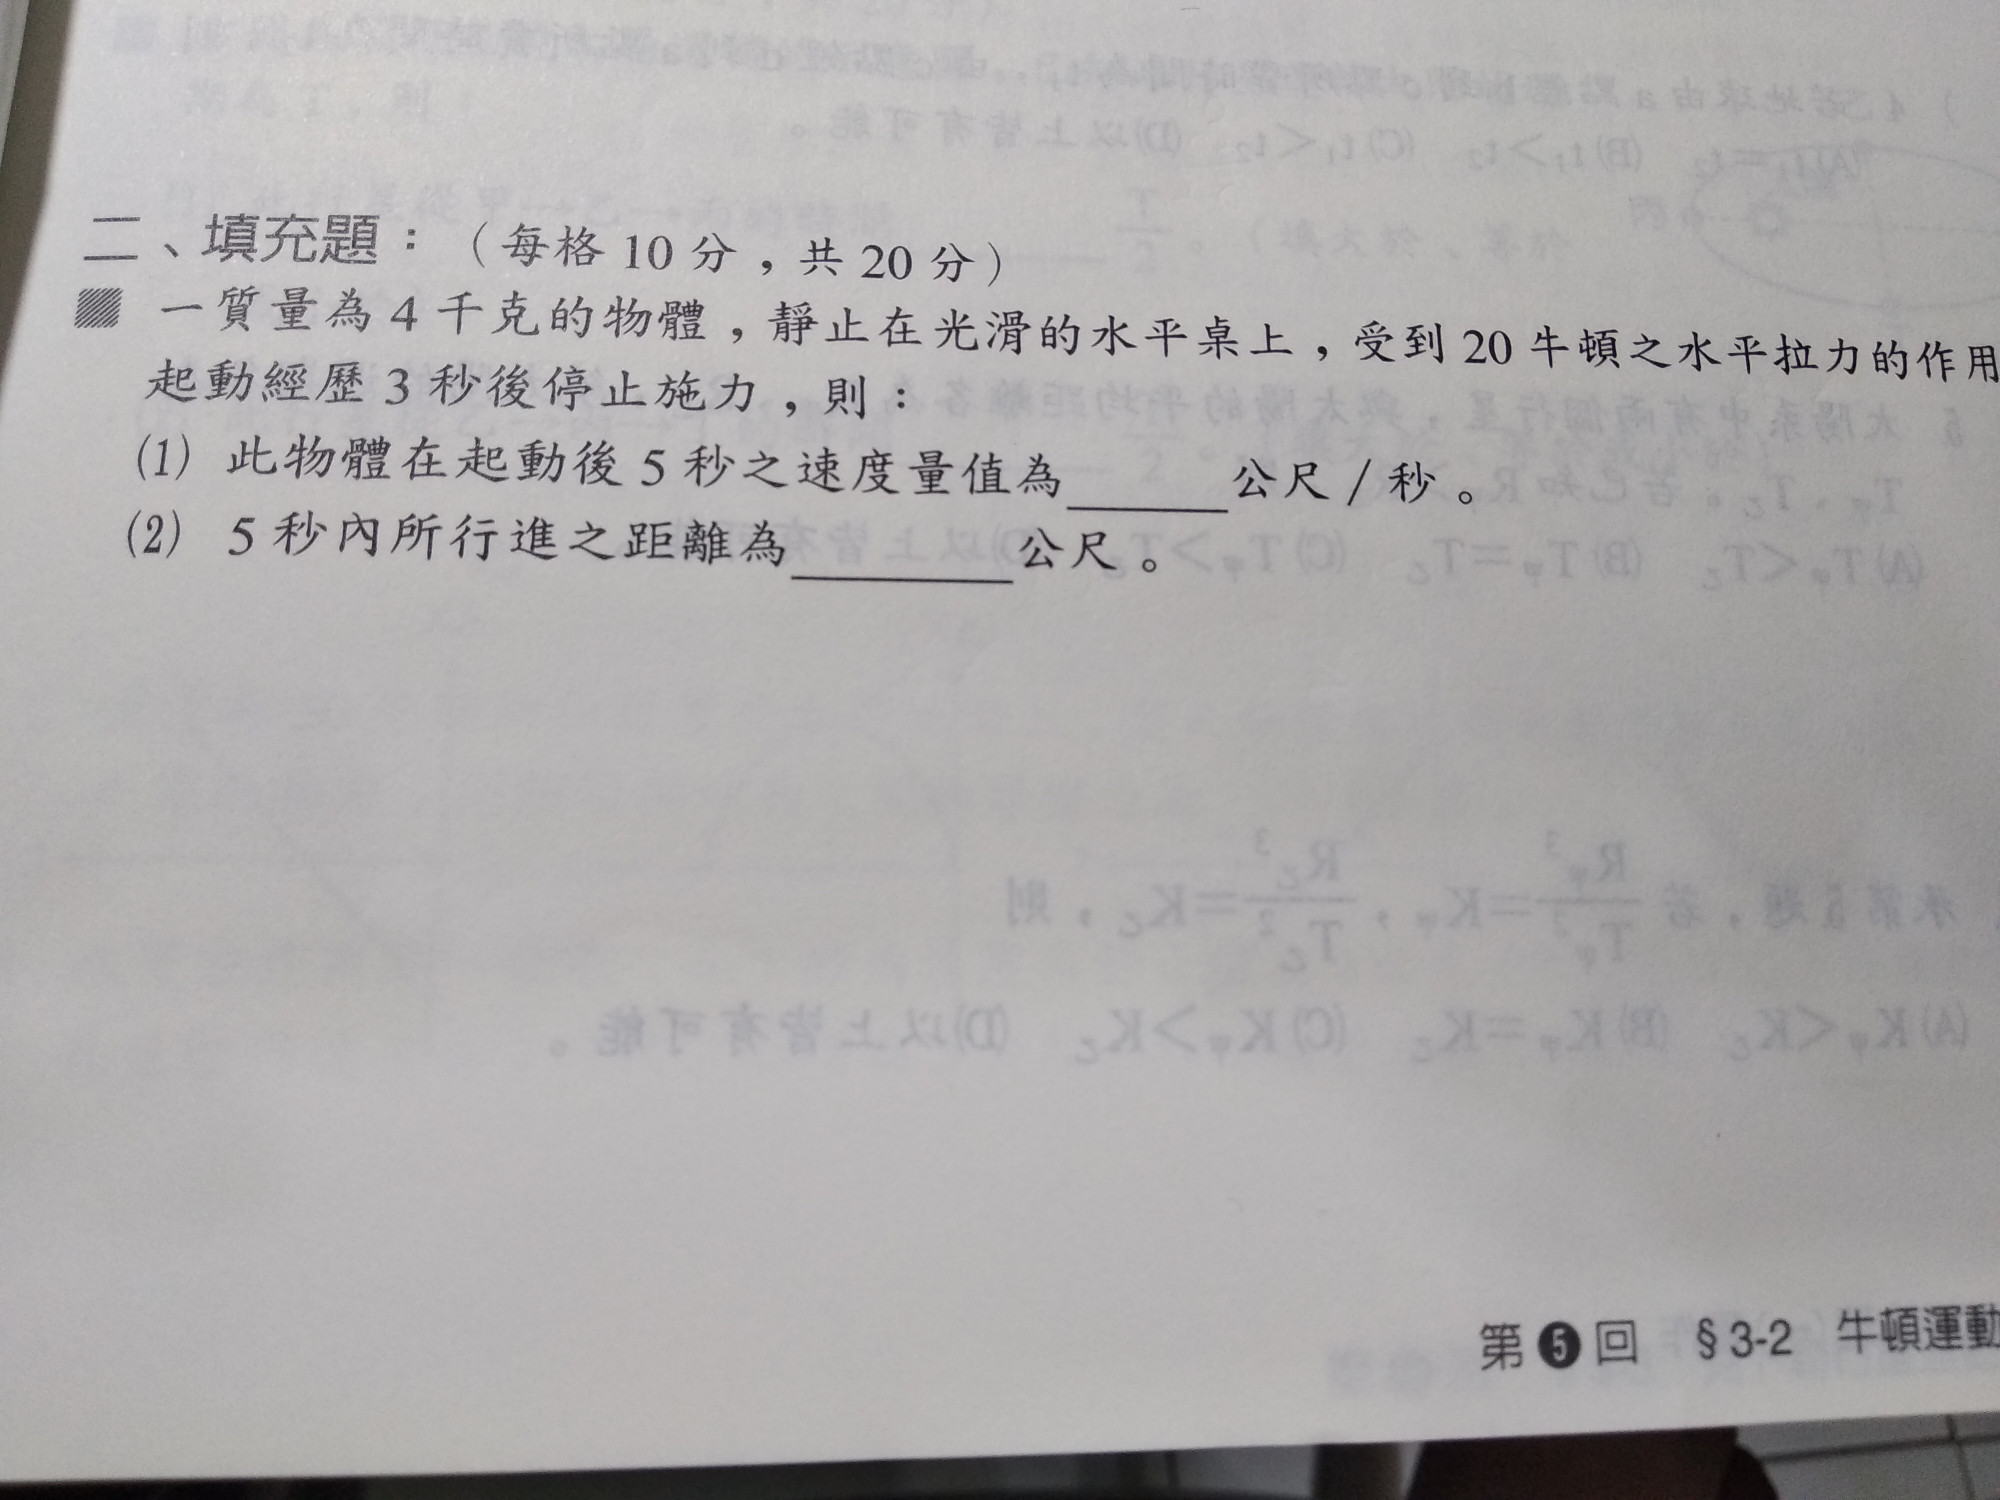 二、填充題：（每格 10 分，共 20 分）
一質量為 4 千克的物體，靜止在光滑的水平桌上，受到 20 牛頓之水平拉力的作用
起動經歷 3 秒後停止施力，則：
(1) 此物體在起動後 5 秒之速度量值為______公尺／秒。
(2) 5 秒內所行進之距離為______公尺。
第❺回 §3-2 牛頓運動